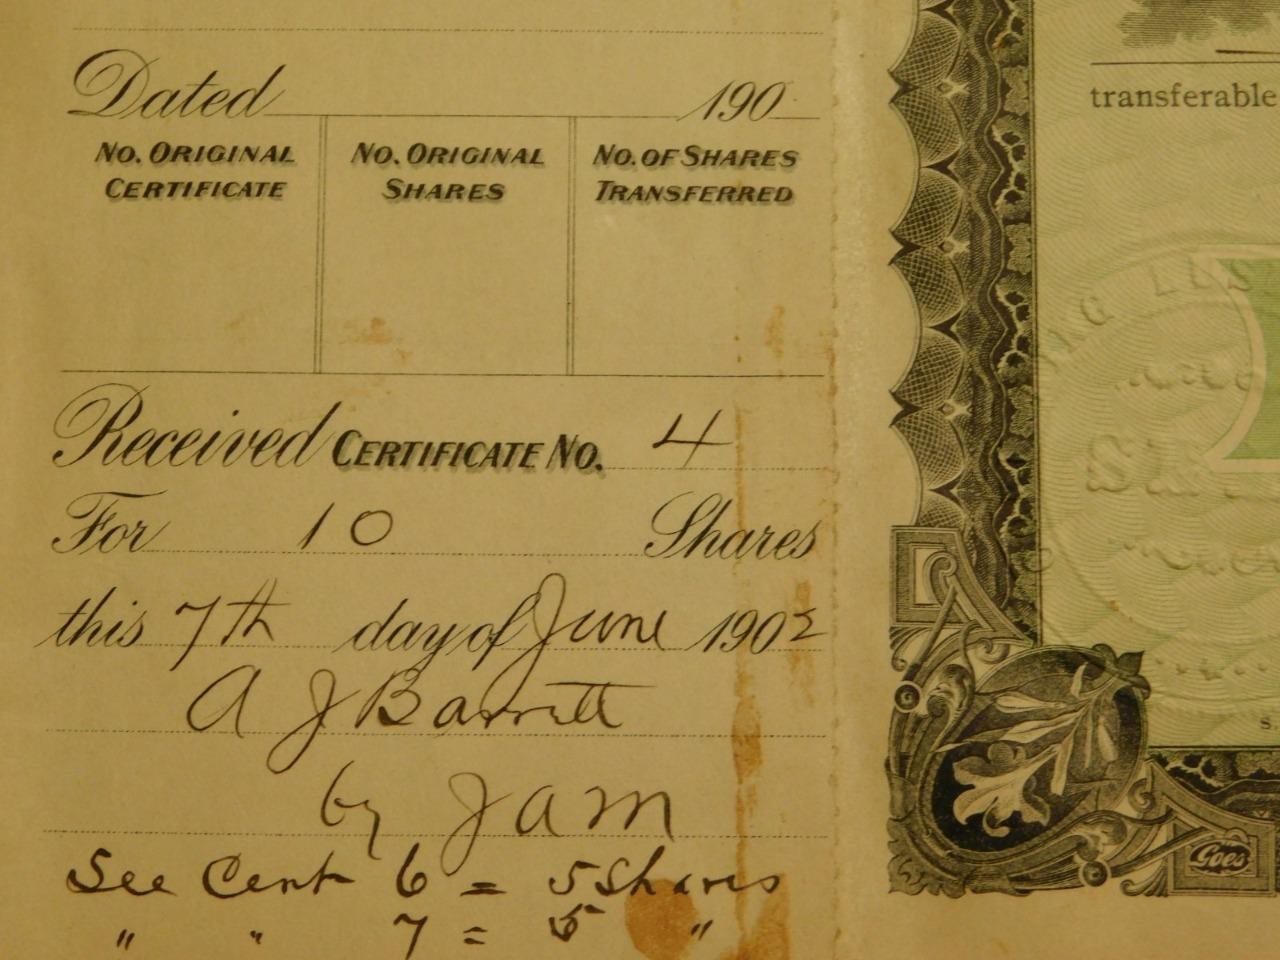 Dated 190
No. Original Certificate
No. Original Shares
No. of Shares Transferred
Received Certificate No. 4
For 10 Shares
this 7th day of June 1902
A J Barrett
by JAM
See Cert 6 = 5 Shares
" " 7 = 5 "
transferable
Goes